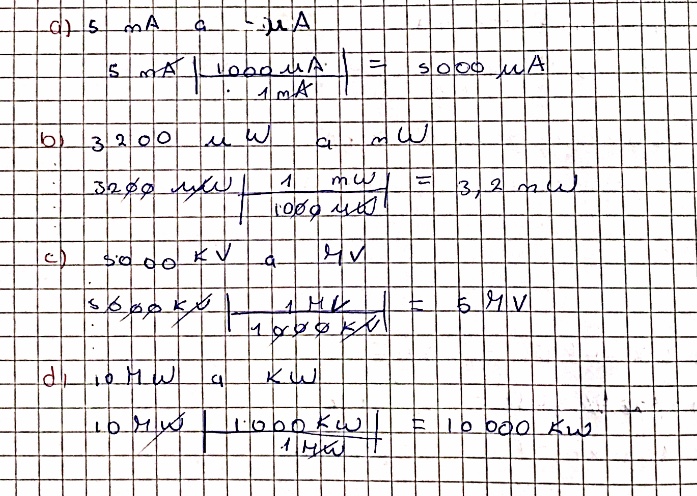 a) 5 mA a μA
5 mA | 1000 μA / 1 mA | = 5000 μA
b) 3200 μW a mW
3200 μW | 1 mW / 1000 μW | = 3,2 mW
c) 5000 KV a MV
5000 KV | 1 MV / 1000 KV | = 5 MV
d) 10 MW a KW
10 MW | 1000 KW / 1 MW | = 10 000 KW